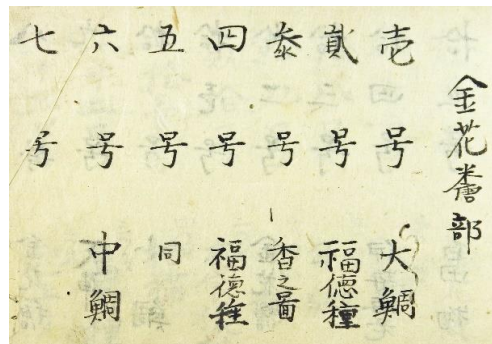 金花糖部
壱号 大鯛
貳号 福德種
叅号 香之圖
四号 福德種
五号 同
六号 中鯛
七号